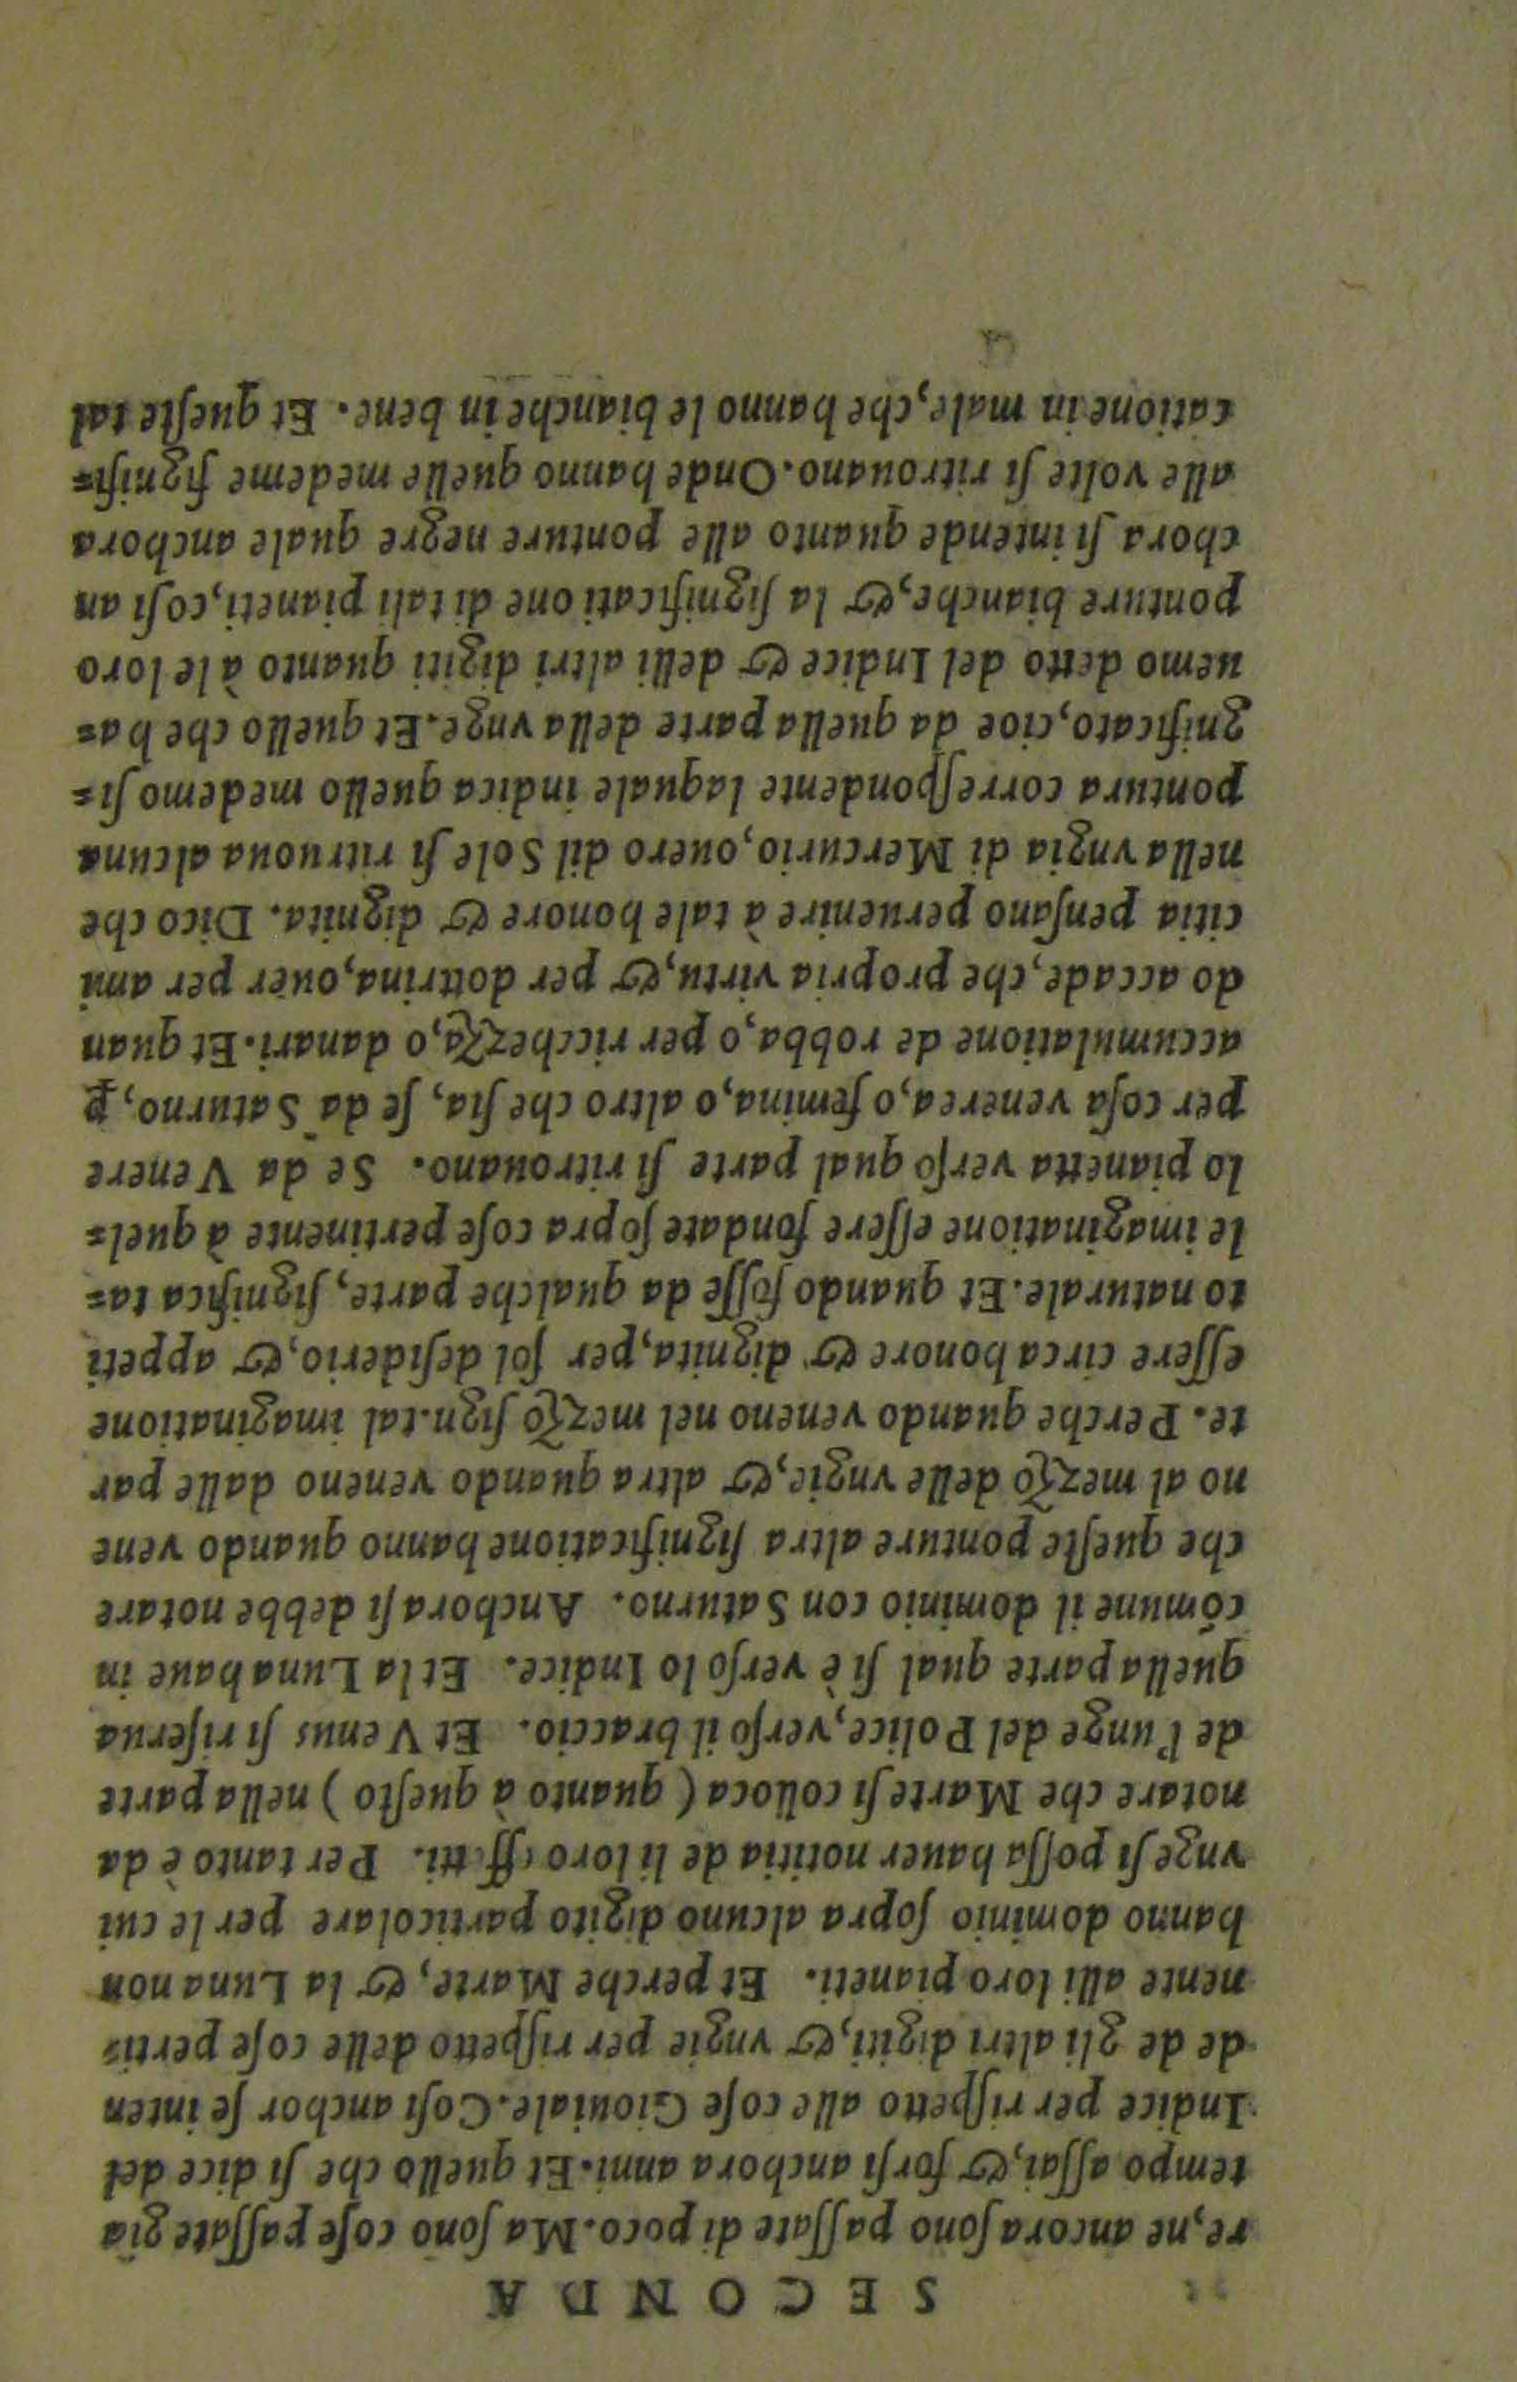 SECONDA
re, ne ancora ſono paſſate di poco. Ma ſono coſe paſſate gia
tempo aſſai, & forſi anchora anni. Et quello che ſi dice del
Indice per riſpetto alle coſe Giouiale. Coſi anchor ſe inten
de de gli altri digiti, & vngie per riſpetto delle coſe perti=
nente alli loro pianeti. Et perche Marte, & la Luna non
hanno dominio ſopra alcuno digito particolare per le cui
vnge ſi poſſa hauer notitia de li loro eff tti. Per tanto è da
notare che Marte ſi colloca ( quanto à queſto ) nella parte
de l'unge del Police, verſo il braccio. Et Venus ſi riſerua
quella parte qual ſi è verſo lo Indice. Et la Luna haue in
cómune il dominio con Saturno. Anchora ſi debbe notare
che queſte ponture altra ſignificatione hanno quando vene
no al mezzo delle vngie, & altra quando veneno dalle par
te. Perche quando veneno nel mezzo ſign. tal imaginatione
eſſere circa honore & dignita, per ſol deſiderio, & appeti
to naturale. Et quando foſſe da qualche parte, ſignifica ta=
le imaginatione eſſere fondate ſopra coſe pertinente à quel=
lo pianetta verſo qual parte ſi ritrouano. Se da Venere
per coſa venerea, o femina, o altro che ſia, ſe da Saturno, ꝑ
accumulatione de robba, o per ricchezza, o danari. Et quan
do accade, che propria virtu, & per dottrina, ouer per ami
citia penſano peruenire à tale honore & dignita. Dico che
nella vngia di Mercurio, ouero dil Sole ſi ritruoua alcuna
pontura correſpondente laquale indica quello medemo ſi=
gnificato, cioe da quella parte della vnge. Et quello che ha=
uemo detto del Indice & delli altri digiti quanto à le loro
ponture bianche, & la ſignificatione di tali pianeti, coſi an
chora ſi intende quanto alle ponture negre quale anchora
alle volte ſi ritrouano. Onde hanno quelle medeme ſignifi=
catione in male, che hanno le bianche in bene. Et queſte tal